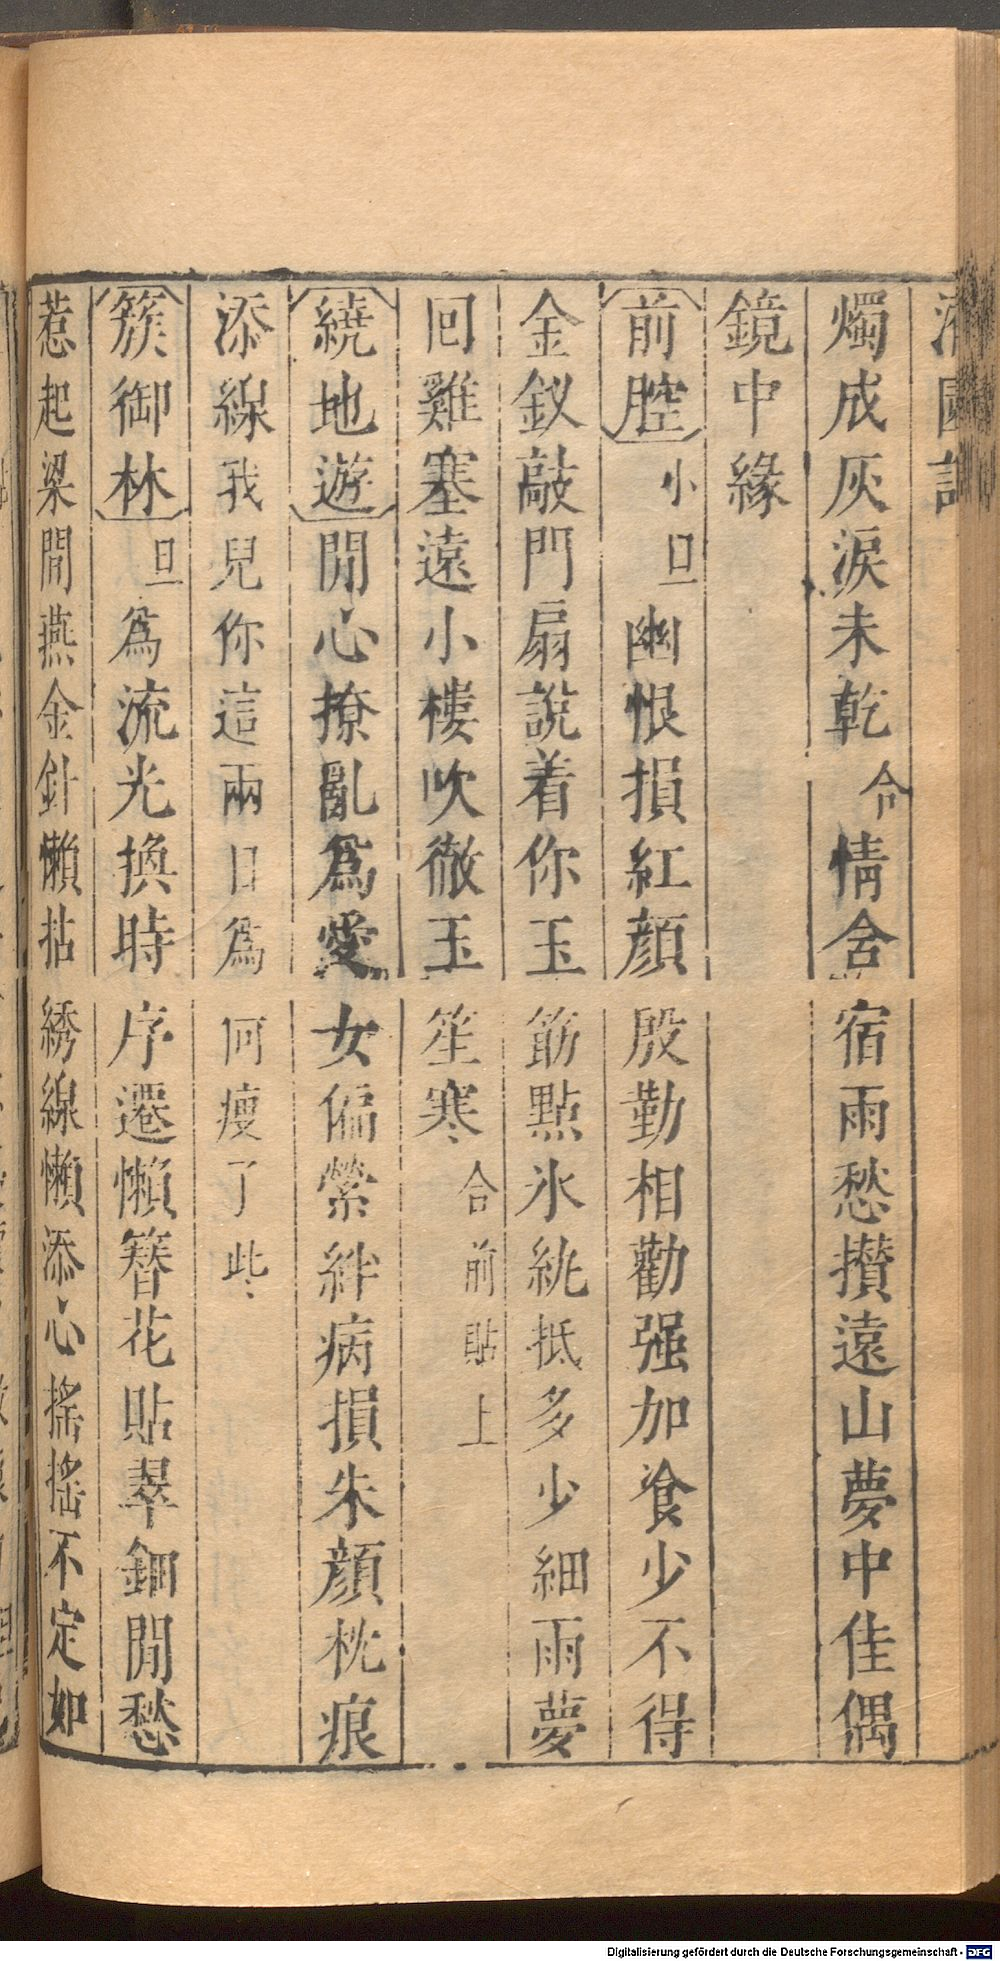 園記
燭成灰淚未乾合情舍宿雨愁攅遠山夢中佳偶
鏡中緣
前腔小旦幽恨損紅顏殷勤相勸强加飡少不得
金釵敲門扇說着你玉筯點氷紈抵多少細雨夢
回雞塞遠小樓吹徹玉笙寒合前貼上
繞地遊閒心撩亂爲愛女偏縈絆病損朱顏枕痕
添線我兒你這兩日爲何瘦了些
簇御林旦爲流光換時序遷懶簪花貼翠鈿閒愁
惹起梁間燕金針懶拈綉線懶添心搖搖不定如
Digitalisierung gefördert durch die Deutsche Forschungsgemeinschaft - DFG